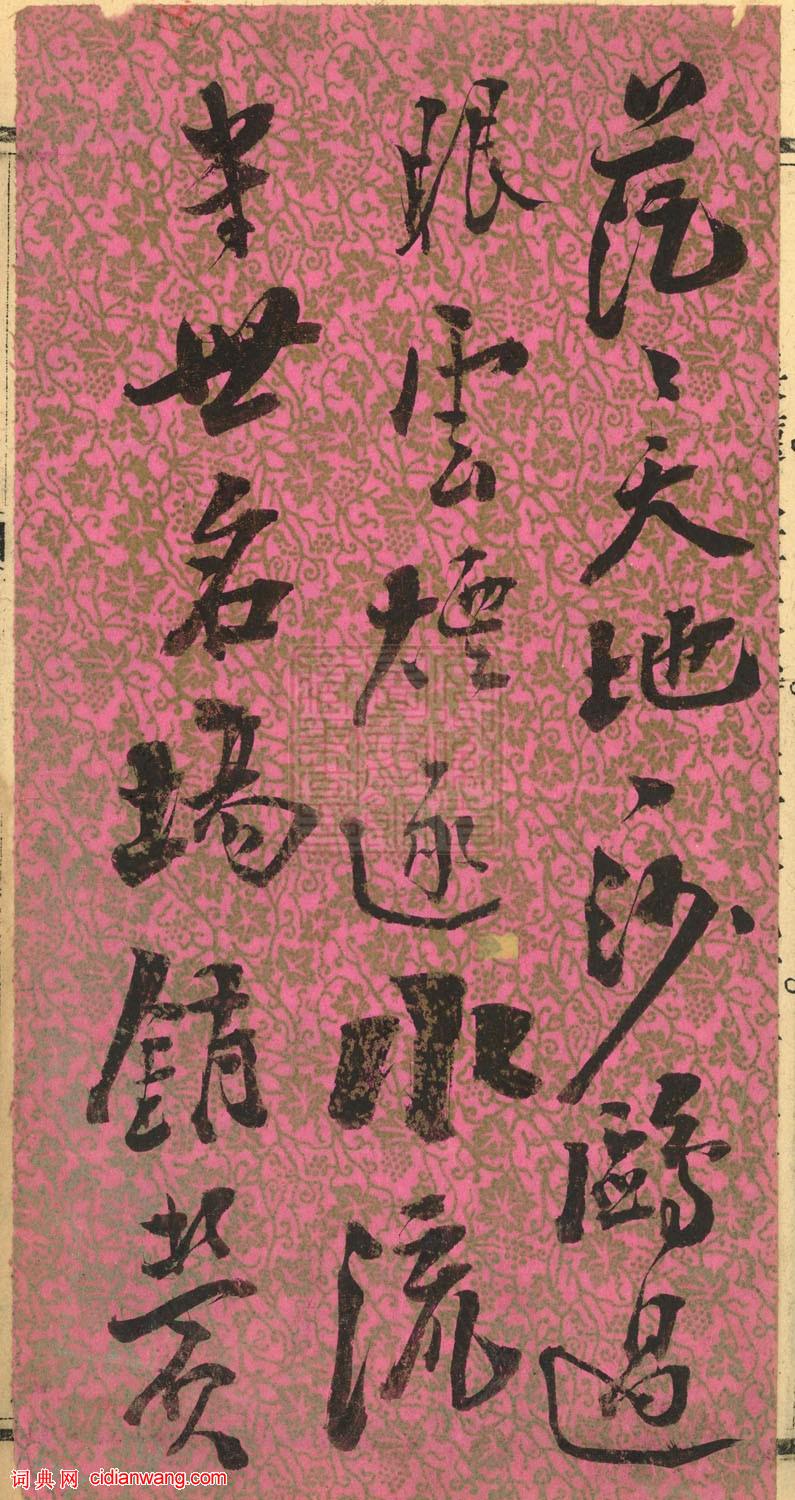 茫〻天地一沙鷗過
眼雲煙逐水流
半世名場銷黃
词典网 cidianwang.com